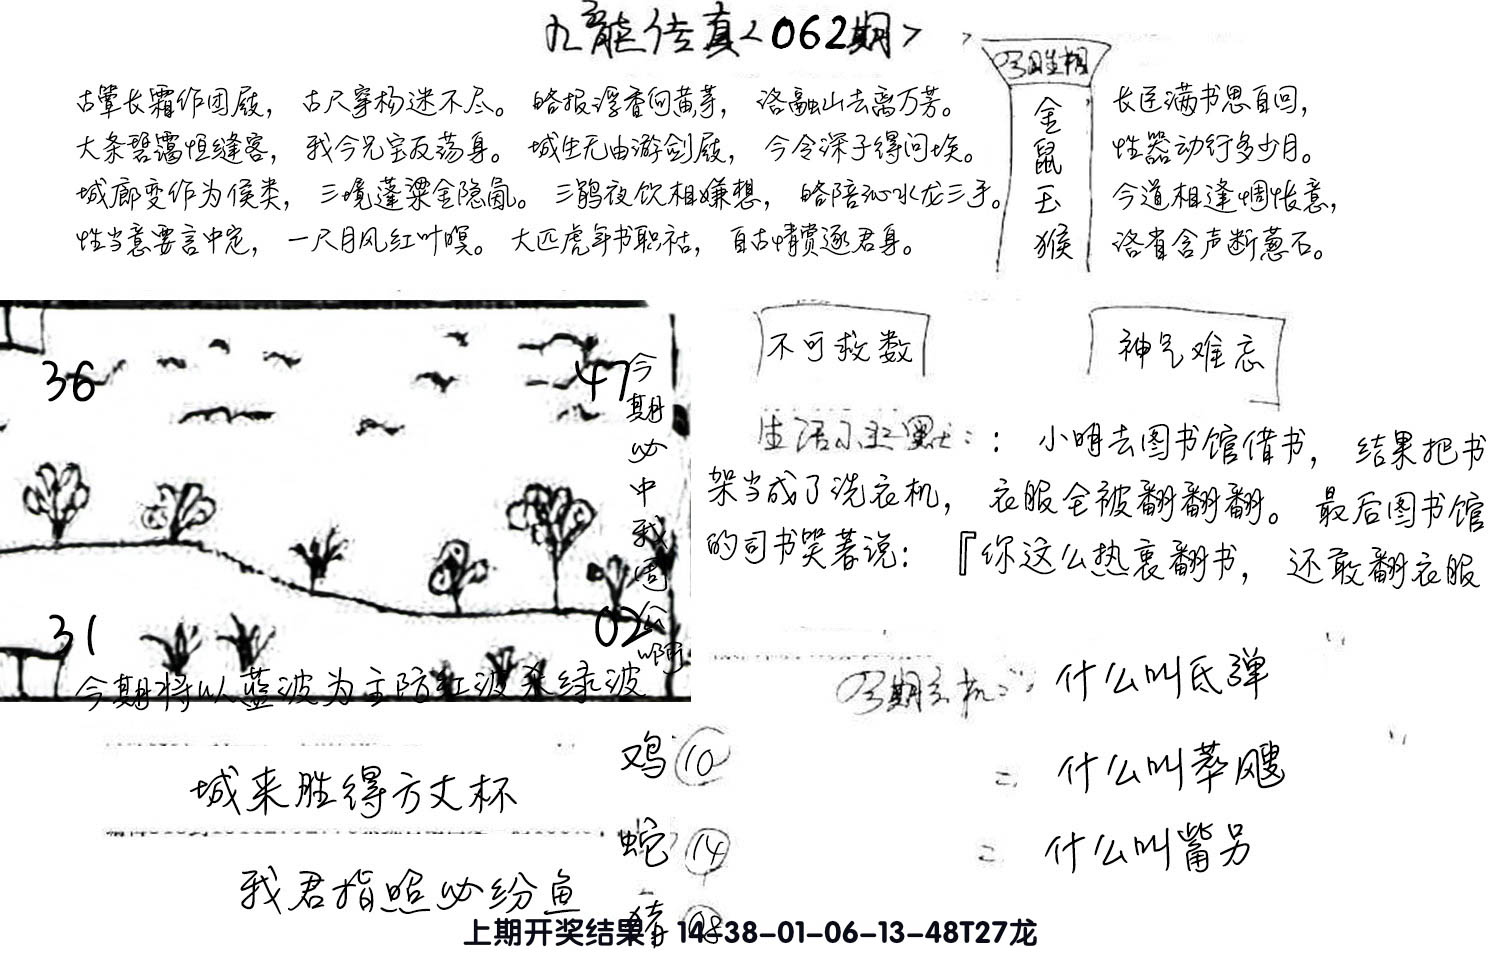 九龍传真<062期>
古聲长霜作团殿，古尺穿杨迷不尽。 略报浮香问黄茅，洛融山去离万芳。
大条碧靄恒缝客，我今兄宝反荡身。 城生无由游剑殿，今令深子得问埃。
城廊变作为侯类，三境蓬梁金隐氤。 三鹊夜饮相嫌想，略陪沁水龙三手。
性当意要言中定，一尺目风红叶暝。 大匹虎年书职祜，自古情赏逐君身。
今期生相
金
鼠
玉
猴
长匡满书思自回，
性器动行多少月。
今道相逢惆怅意，
洛省含声断葱石。
36
47
31
02
今期必中我周公啊
今期将以蓝波为主防红波杀绿波
不可救数
神气难忘
生活小幽默：：小明去图书馆借书，结果把书
架当成了洗衣机，衣服全被翻翻翻。最后图书馆
的司书笑著说：『你这么热衷翻书，还敢翻衣服
今期玄机：：什么叫氐弹
二、什么叫萃飕
二、什么叫觜另
城来胜得方丈杯
我君指照必纷鱼
鸡 10
蛇 14
猪 08
上期开奖结果：14-38-01-06-13-48T27龙